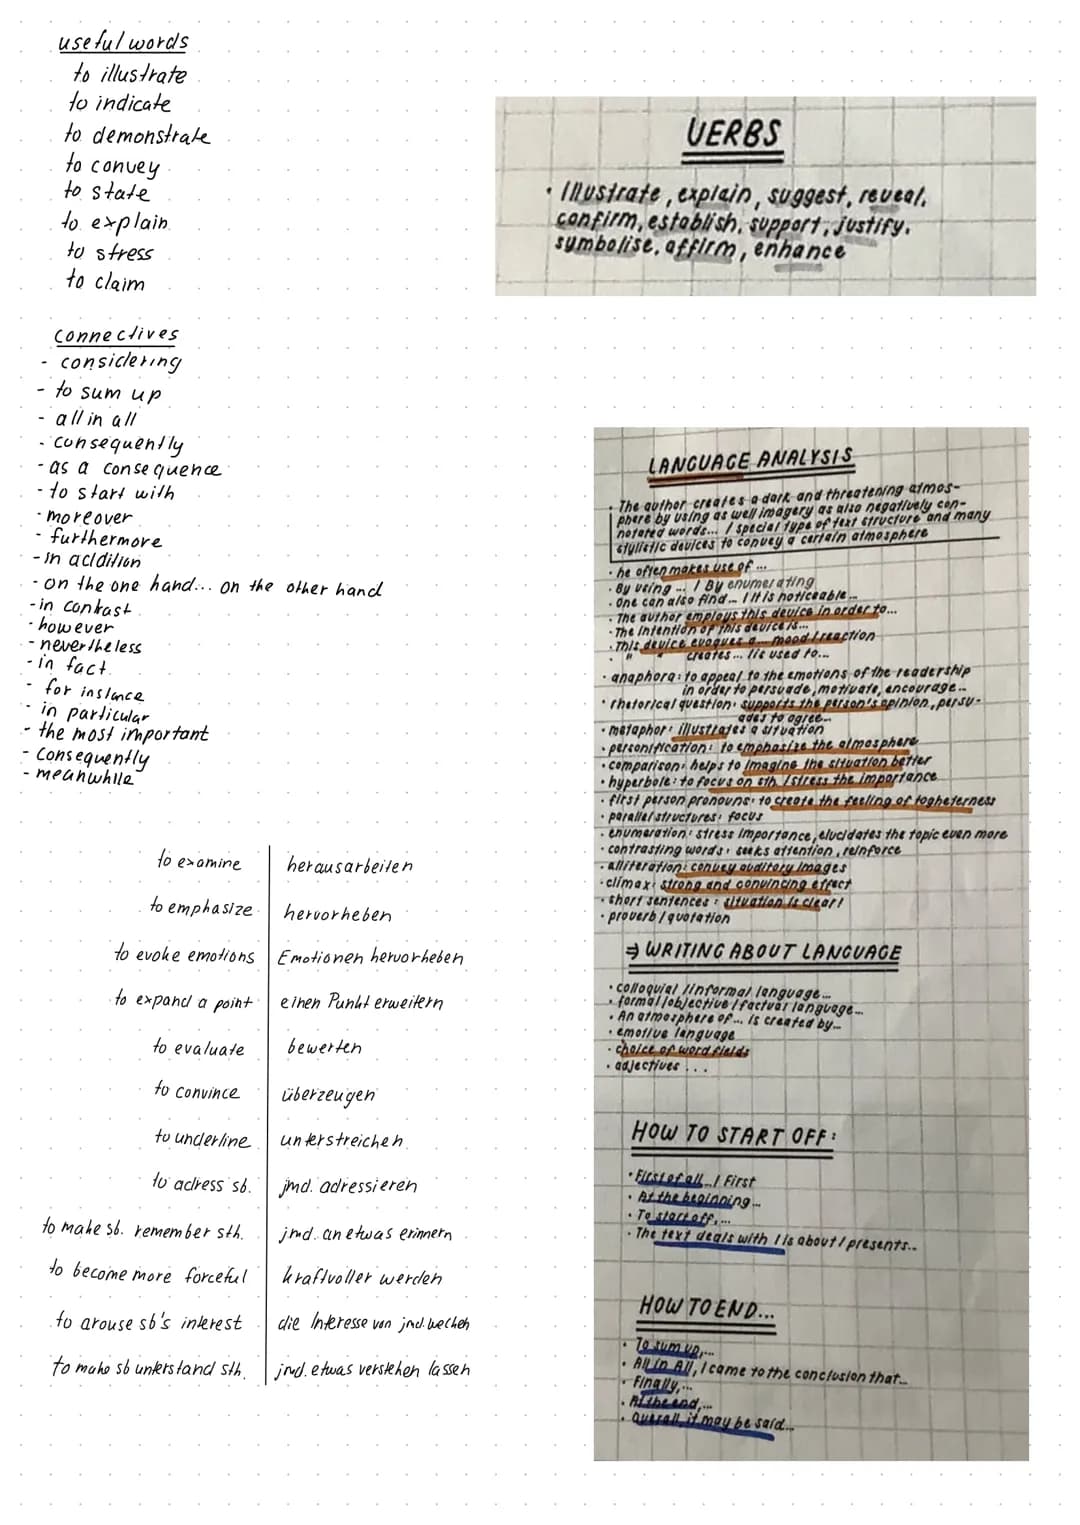 useful words
to illustrate
to indicate
to demonstrate
to convey
to state
to explain
to stress
to claim
connectives
- considering
- to sum up
- all in all
- consequently
- as a consequence
- to start with
- moreover
- furthermore
- in addition
- on the one hand... on the other hand
- in contrast
- however
- nevertheless
- in fact
- for instance
- in particular
- the most important
- Consequently
- meanwhile
to examine herausarbeiten
to emphasize hervorheben
to evoke emotions Emotionen hervorheben
to expand a point einen Punkt erweitern
to evaluate bewerten
to convince überzeugen
to underline unterstreichen
to adress sb. jmd. adressieren
to make sb. remember sth. jmd. an etwas erinnern
to become more forceful kraftvoller werden
to arouse sb's interest die Interesse von jmd. wecken
to make sb understand sth. jmd. etwas verstehen lassen
VERBS
• Illustrate, explain, suggest, reveal,
confirm, establish, support, justify,
symbolise, affirm, enhance
LANGUAGE ANALYSIS
• The author creates a dark and threatening atmos-
phere by using as well imagery as also negatively con-
notated words... / special type of text structure and many
stylistic devices to convey a certain atmosphere
• he often makes use of ...
• By using ... / By enumerating
• One can also find... / It is noticeable...
• The author employs this device in order to...
• The intention of this device is...
• This device evoques a... mood / reaction
• " " creates... / is used to...
• anaphora: to appeal to the emotions of the readership
in order to persuade, motivate, encourage...
• rhetorical question: supports the person's opinion, persu-
ades to agree...
• metaphor: illustrates a situation
• personification: to emphasize the atmosphere
• comparison: helps to imagine the situation better
• hyperbole: to focus on sth. / stress the importance
• first person pronouns: to create the feeling of togheterness
• parallel structures: focus
• enumeration: stress importance, elucidates the topic even more
• contrasting words: seeks attention, reinforce
• alliteration: convey auditory images
• climax: strong and convincing effect
• short sentences: situation is clear!
• proverb / quotation
⇒ WRITING ABOUT LANGUAGE
• colloquial / informal language...
• formal / objective / factual language...
• An atmosphere of... is created by...
• emotive language
• choice of word fields
• adjectives ...
HOW TO START OFF:
• First of all... / First
• At the beginning...
• To start off,...
• The text deals with / is about / presents...
HOW TO END...
• To sum up,...
• All in All, I came to the conclusion that...
• Finally,...
• At the end,...
• Overall, it may be said...